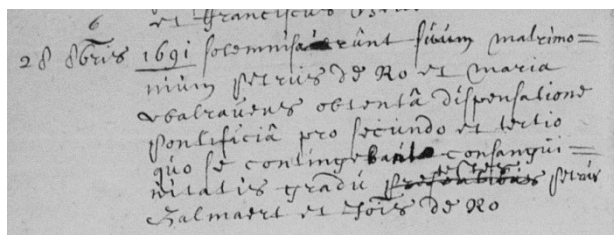 6 et Franciscus
28 8bris 1691 solemnisaverunt suum matrimo=
nium Petrus de Ro et Maria
Walravens obtentâ dispensatione
Pontificiâ pro secundo et tertio
quo se contingebant consangui=
nitatis gradu testes Petrus
Zalmaert et Jois de Ro